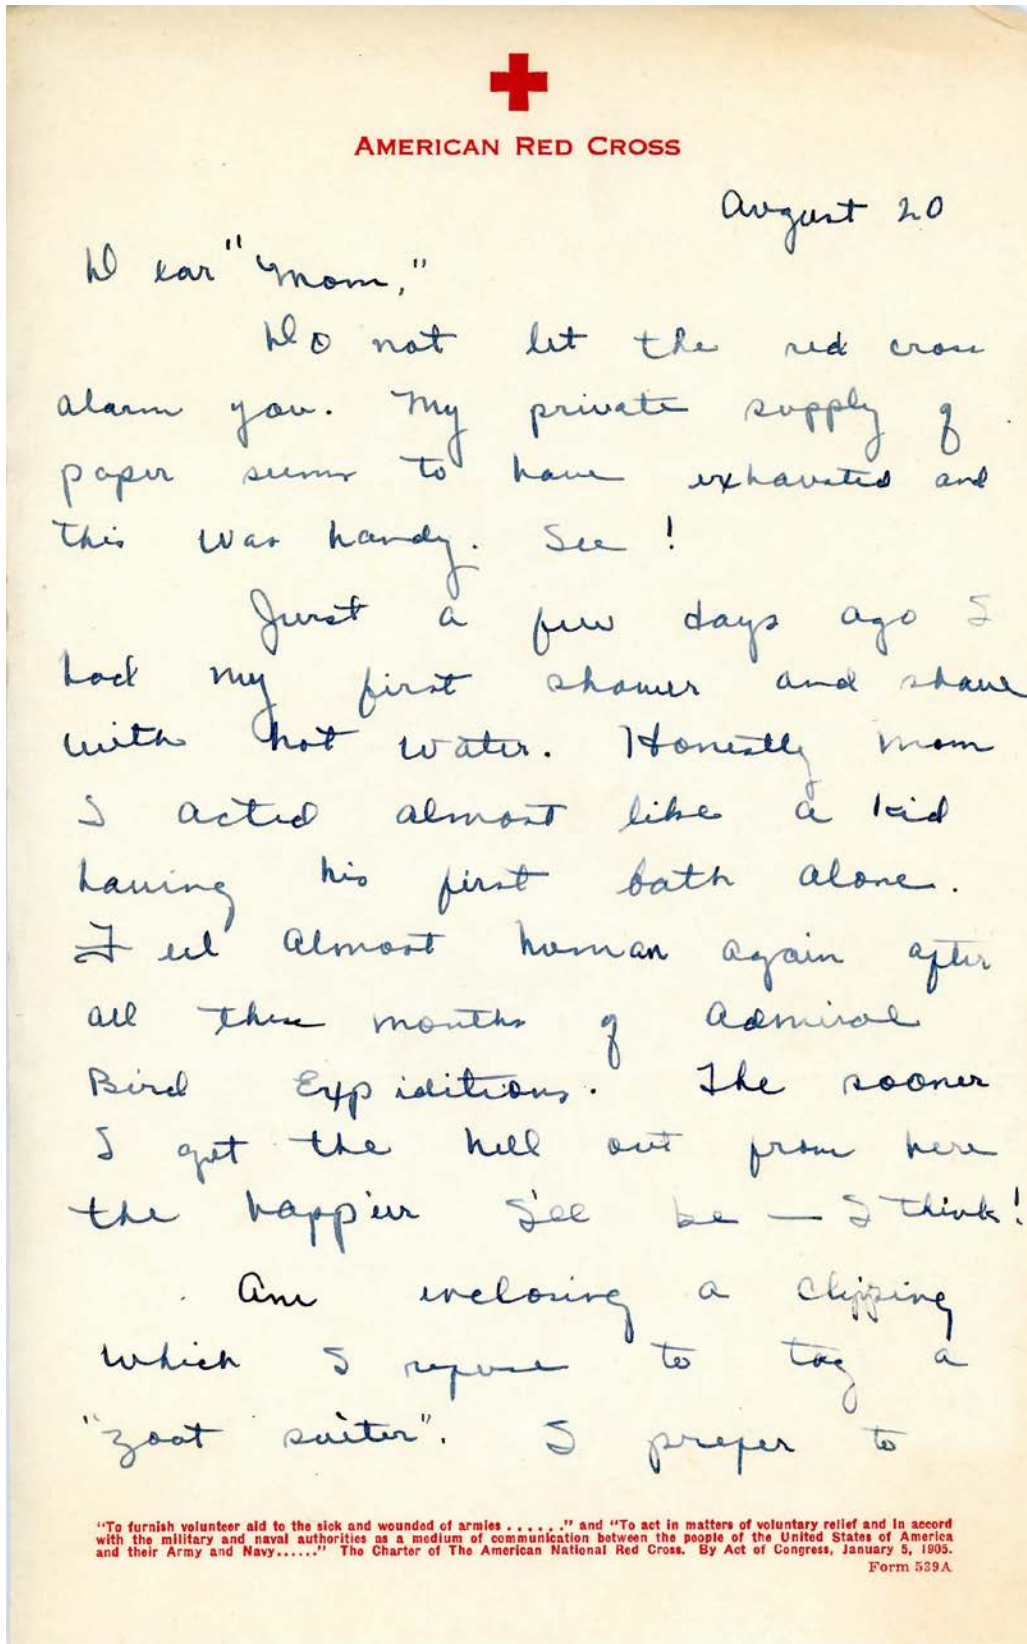 AMERICAN RED CROSS
August 20
Dear "Mom,"
Do not let the red cross
alarm you. My private supply of
paper seems to have exhausted and
this was handy. See!
Just a few days ago I
had my first shower and shave
with hot water. Honestly Mom
I acted almost like a kid
having his first bath alone.
Feel almost human again after
all these months of Admiral
Bird Expiditions. The sooner
I get the hell out from here
the happier I'll be — I think!
Am enclosing a clipping
which I refuse to tag a
"zoot suiter". I prefer to
"To furnish volunteer aid to the sick and wounded of armies ......" and "To act in matters of voluntary relief and in accord
with the military and naval authorities as a medium of communication between the people of the United States of America
and their Army and Navy......" The Charter of The American National Red Cross. By Act of Congress, January 5, 1905.
Form 539A